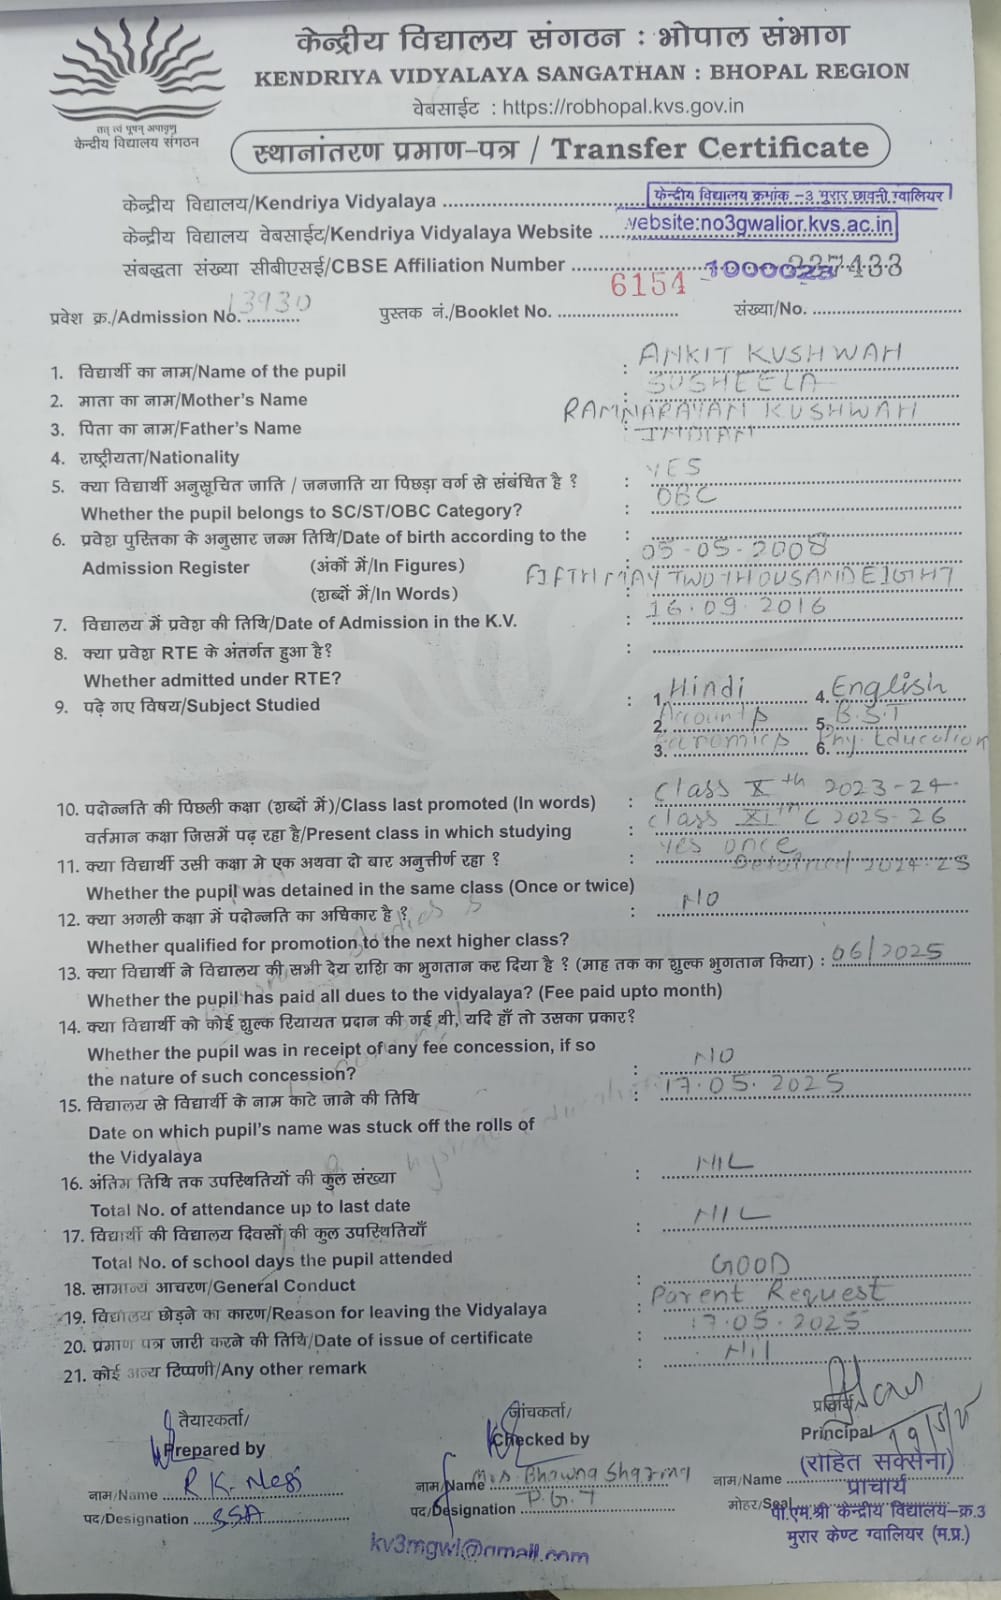 केन्द्रीय विद्यालय संगठन : भोपाल संभाग
KENDRIYA VIDYALAYA SANGATHAN : BHOPAL REGION
वेबसाईट : https://robhopal.kvs.gov.in
तत् त्वं पूषन् अपावृणु
केन्द्रीय विद्यालय संगठन
स्थानांतरण प्रमाण-पत्र / Transfer Certificate
केन्द्रीय विद्यालय/Kendriya Vidyalaya केन्द्रीय विद्यालय क्रमांक -3 मुरार छावनी ग्वालियर
केन्द्रीय विद्यालय वेबसाईट/Kendriya Vidyalaya Website website:no3gwalior.kvs.ac.in
संबद्धता संख्या सीबीएसई/CBSE Affiliation Number
6154
प्रवेश क्र./Admission No. 13930 पुस्तक नं./Booklet No. संख्या/No.
1. विद्यार्थी का नाम/Name of the pupil : ANKIT KUSHWAH
2. माता का नाम/Mother's Name : SUSHEELA
3. पिता का नाम/Father's Name RAMNARAYAN KUSHWAH
4. राष्ट्रीयता/Nationality INDIAN
5. क्या विद्यार्थी अनुसूचित जाति / जनजाति या पिछड़ा वर्ग से संबंधित है ? : YES
Whether the pupil belongs to SC/ST/OBC Category? : OBC
6. प्रवेश पुस्तिका के अनुसार जन्म तिथि/Date of birth according to the :
Admission Register (अंकों में/In Figures) : 05-05-2008
(शब्दों में/In Words) FIFTH MAY TWO THOUSAND EIGHT
7. विद्यालय में प्रवेश की तिथि/Date of Admission in the K.V. : 16.09.2016
8. क्या प्रवेश RTE के अंतर्गत हुआ है? :
Whether admitted under RTE?
9. पढ़े गए विषय/Subject Studied : 1. Hindi 4. English
2. Accounts 5. B.S.T
3. Economics 6. Phy. Education
10. पदोन्नति की पिछली कक्षा (शब्दों में)/Class last promoted (In words) : Class Xth 2023-24
वर्तमान कक्षा जिसमें पढ़ रहा है/Present class in which studying : Class XIth C 2025-26
11. क्या विद्यार्थी उसी कक्षा मे एक अथवा दो बार अनुत्तीर्ण रहा ? : Yes once
Detained 2024-25
Whether the pupil was detained in the same class (Once or twice)
12. क्या अगली कक्षा में पदोन्नति का अधिकार है ? : NO
Whether qualified for promotion to the next higher class?
13. क्या विद्यार्थी ने विद्यालय की सभी देय राशि का भुगतान कर दिया है ? (माह तक का शुल्क भुगतान किया) : 06/2025
Whether the pupil has paid all dues to the vidyalaya? (Fee paid upto month)
14. क्या विद्यार्थी को कोई शुल्क रियायत प्रदान की गई थी, यदि हाँ तो उसका प्रकार?
Whether the pupil was in receipt of any fee concession, if so
the nature of such concession? : NO
15. विद्यालय से विद्यार्थी के नाम काटे जाने की तिथि : 17.05.2025
Date on which pupil's name was stuck off the rolls of
the Vidyalaya
16. अंतिम तिथि तक उपस्थितियों की कुल संख्या : NIL
Total No. of attendance up to last date
17. विद्यार्थी की विद्यालय दिवसों की कुल उपस्थितियाँ : NIL
Total No. of school days the pupil attended
18. सामान्य आचरण/General Conduct : GOOD
19. विद्यालय छोड़ने का कारण/Reason for leaving the Vidyalaya : Parent Request
20. प्रमाण पत्र जारी करने की तिथि/Date of issue of certificate : 17.05.2025
21. कोई अन्य टिप्पणी/Any other remark : Nil
तैयारकर्ता/ जांचकर्ता/ प्राचार्य/
Prepared by Checked by Principal
नाम/Name R.K. Negi नाम/Name Mrs. Bhawna Sharma नाम/Name (रोहित सक्सेना)
पद/Designation SSA पद/Designation P.G.T मोहर/Seal प्राचार्य
पी.एम.श्री केन्द्रीय विद्यालय-क्र.3
मुरार केण्ट ग्वालियर (म.प्र.)
kv3mgwl@gmail.com